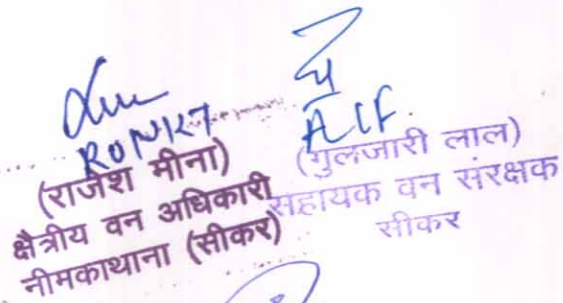 RO NKT
(राजेश मीना)
क्षैत्रीय वन अधिकारी
नीमकाथाना (सीकर)
ACF.
(गुलजारी लाल)
सहायक वन संरक्षक
सीकर